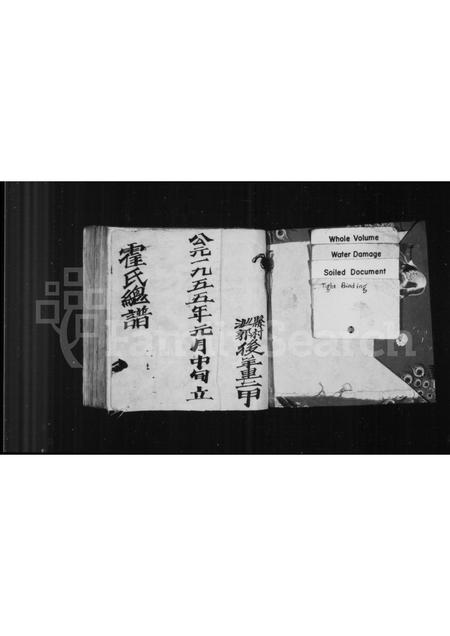 後峯里二甲
公元一九五五年元月中旬立
霍氏總譜
Whole Volume
Water Damage
Soiled Document
Tight Binding
FamilySearch